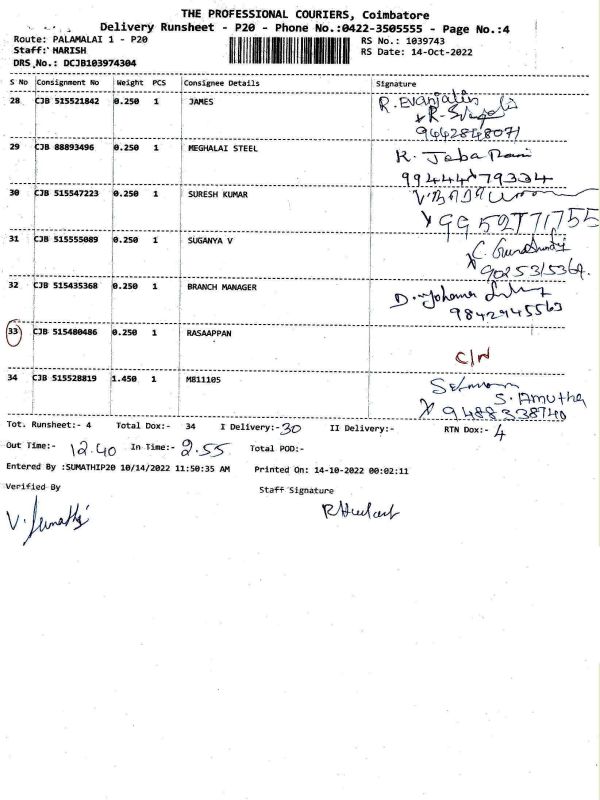 THE PROFESSIONAL COURIERS, Coimbatore
Delivery Runsheet - P20 - Phone No.:0422-3505555 - Page No.:4
Route: PALAMALAI 1 - P20 RS No.: 1039743
Staff: HARISH RS Date: 14-Oct-2022
DRS No.: DCJB103974304
S No Consignment No Weight PCS Consignee Details Signature
28 CJB 515521842 0.250 1 JAMES R. Evanjalin
9442848071
29 CJB 88893496 0.250 1 MEGHALAI STEEL K. Jeba Rani
9944479334
30 CJB 515547223 0.250 1 SURESH KUMAR
9952771755
31 CJB 515555089 0.250 1 SUGANYA V
9025315364
32 CJB 515435368 0.250 1 BRANCH MANAGER
9842945563
33 CJB 515480486 0.250 1 RASAAPPAN
34 CJB 515528819 1.450 1 MB11105
S. Amutha
9488338740
Tot. Runsheet:- 4 Total Dox:- 34 I Delivery:- 30 II Delivery:- RTN Dox:- 4
Out Time:- 12.40 In Time:- 2.55 Total POD:-
Entered By :SUMATHIP20 10/14/2022 11:50:35 AM Printed On: 14-10-2022 00:02:11
Verified By Staff Signature
V. Sumathi